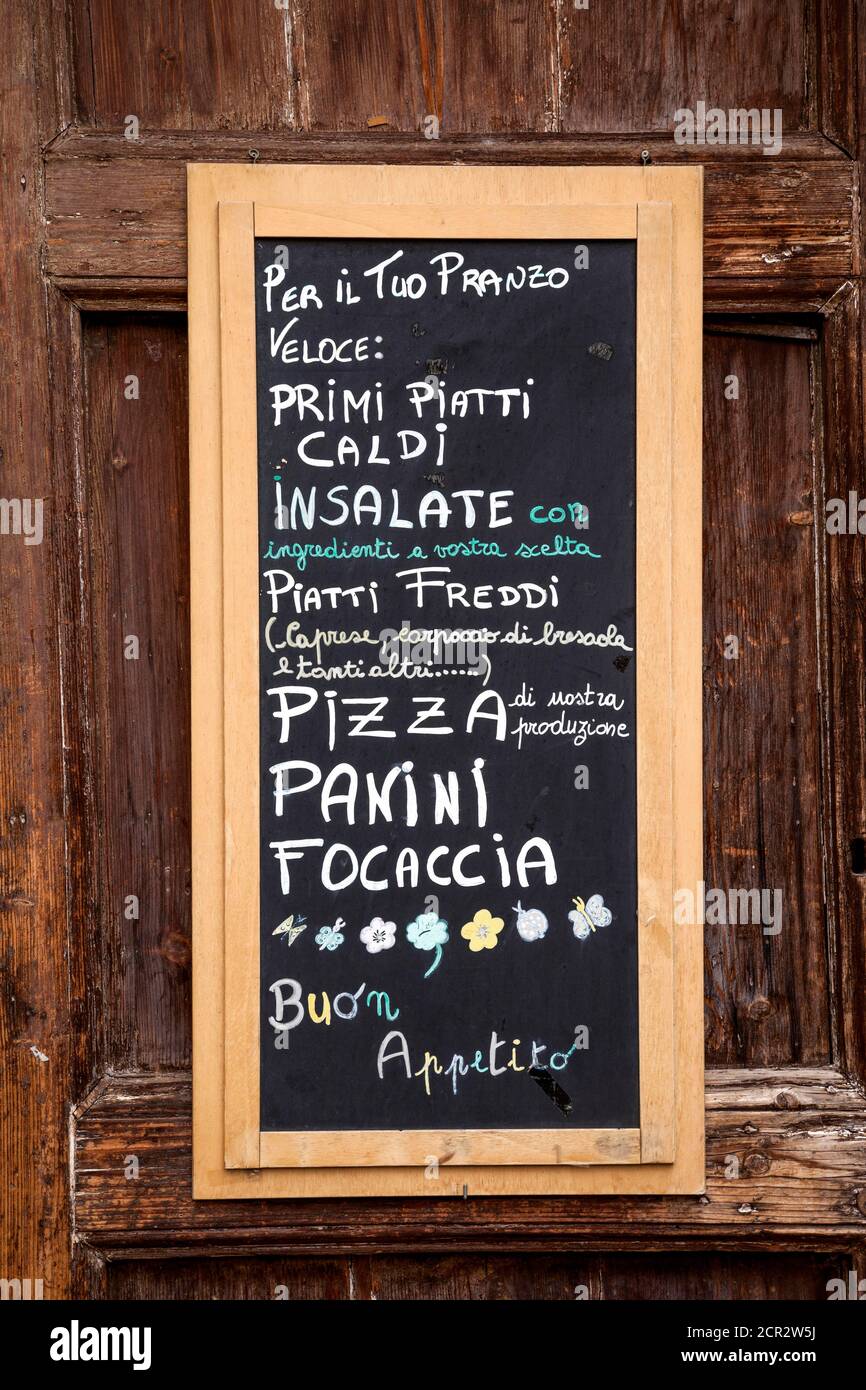 PER IL TUO PRANZO
VELOCE:
PRIMI PIATTI
CALDI
INSALATE con
ingredienti a vostra scelta
PIATTI FREDDI
(Caprese, carpaccio di bresaola
e tanti altri......)
PIZZA di nostra
produzione
PANINI
FOCACCIA
Buon
Appetito
alamy
Image ID: 2CR2W5J
www.alamy.com